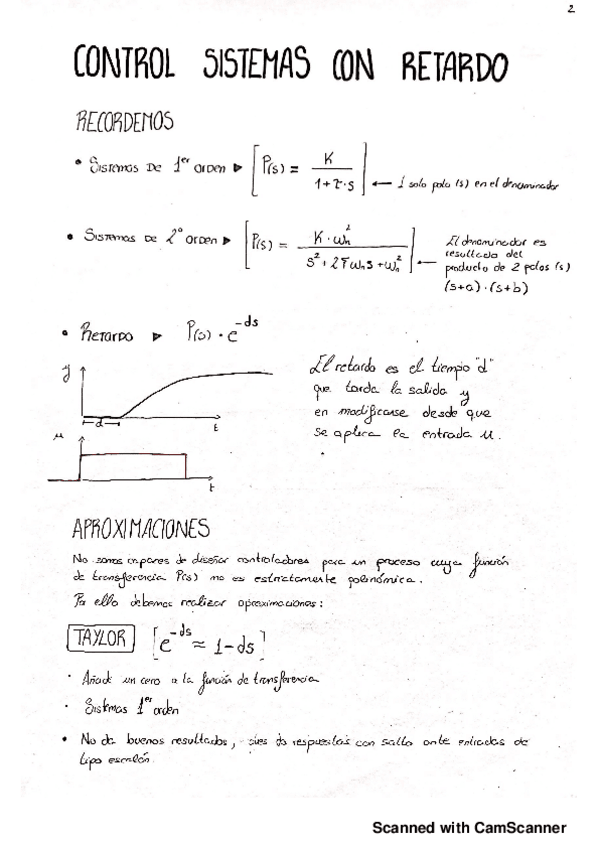 2
CONTROL SISTEMAS CON RETARDO
RECORDEMOS
• Sistemas de 1er orden ▷ [P(s) = K / (1+τ·s)] ← 1 solo polo (s) en el denominador
• Sistemas de 2º orden ▷ [P(s) = K·ωn² / (s²+2ζωns+ωn²)] ← El denominador es
resultado del
producto de 2 polos (s)
(s+a)·(s+b)
• Retardo ▷ P(s)·e^-ds
y
d
t
u
t
El retardo es el tiempo "d"
que tarda la salida y
en modificarse desde que
se aplica la entrada u.
APROXIMACIONES
No somos capaces de diseñar controladores para un proceso cuya función
de transferencia P(s) no es estrictamente polinómica.
Por ello debemos realizar aproximaciones:
TAYLOR [e^-ds ≈ 1-ds]
· Añade un cero a la función de transferencia
· Sistemas 1er orden
• No da buenos resultados, pues da respuestas con salto ante entradas de
tipo escalón.
Scanned with CamScanner